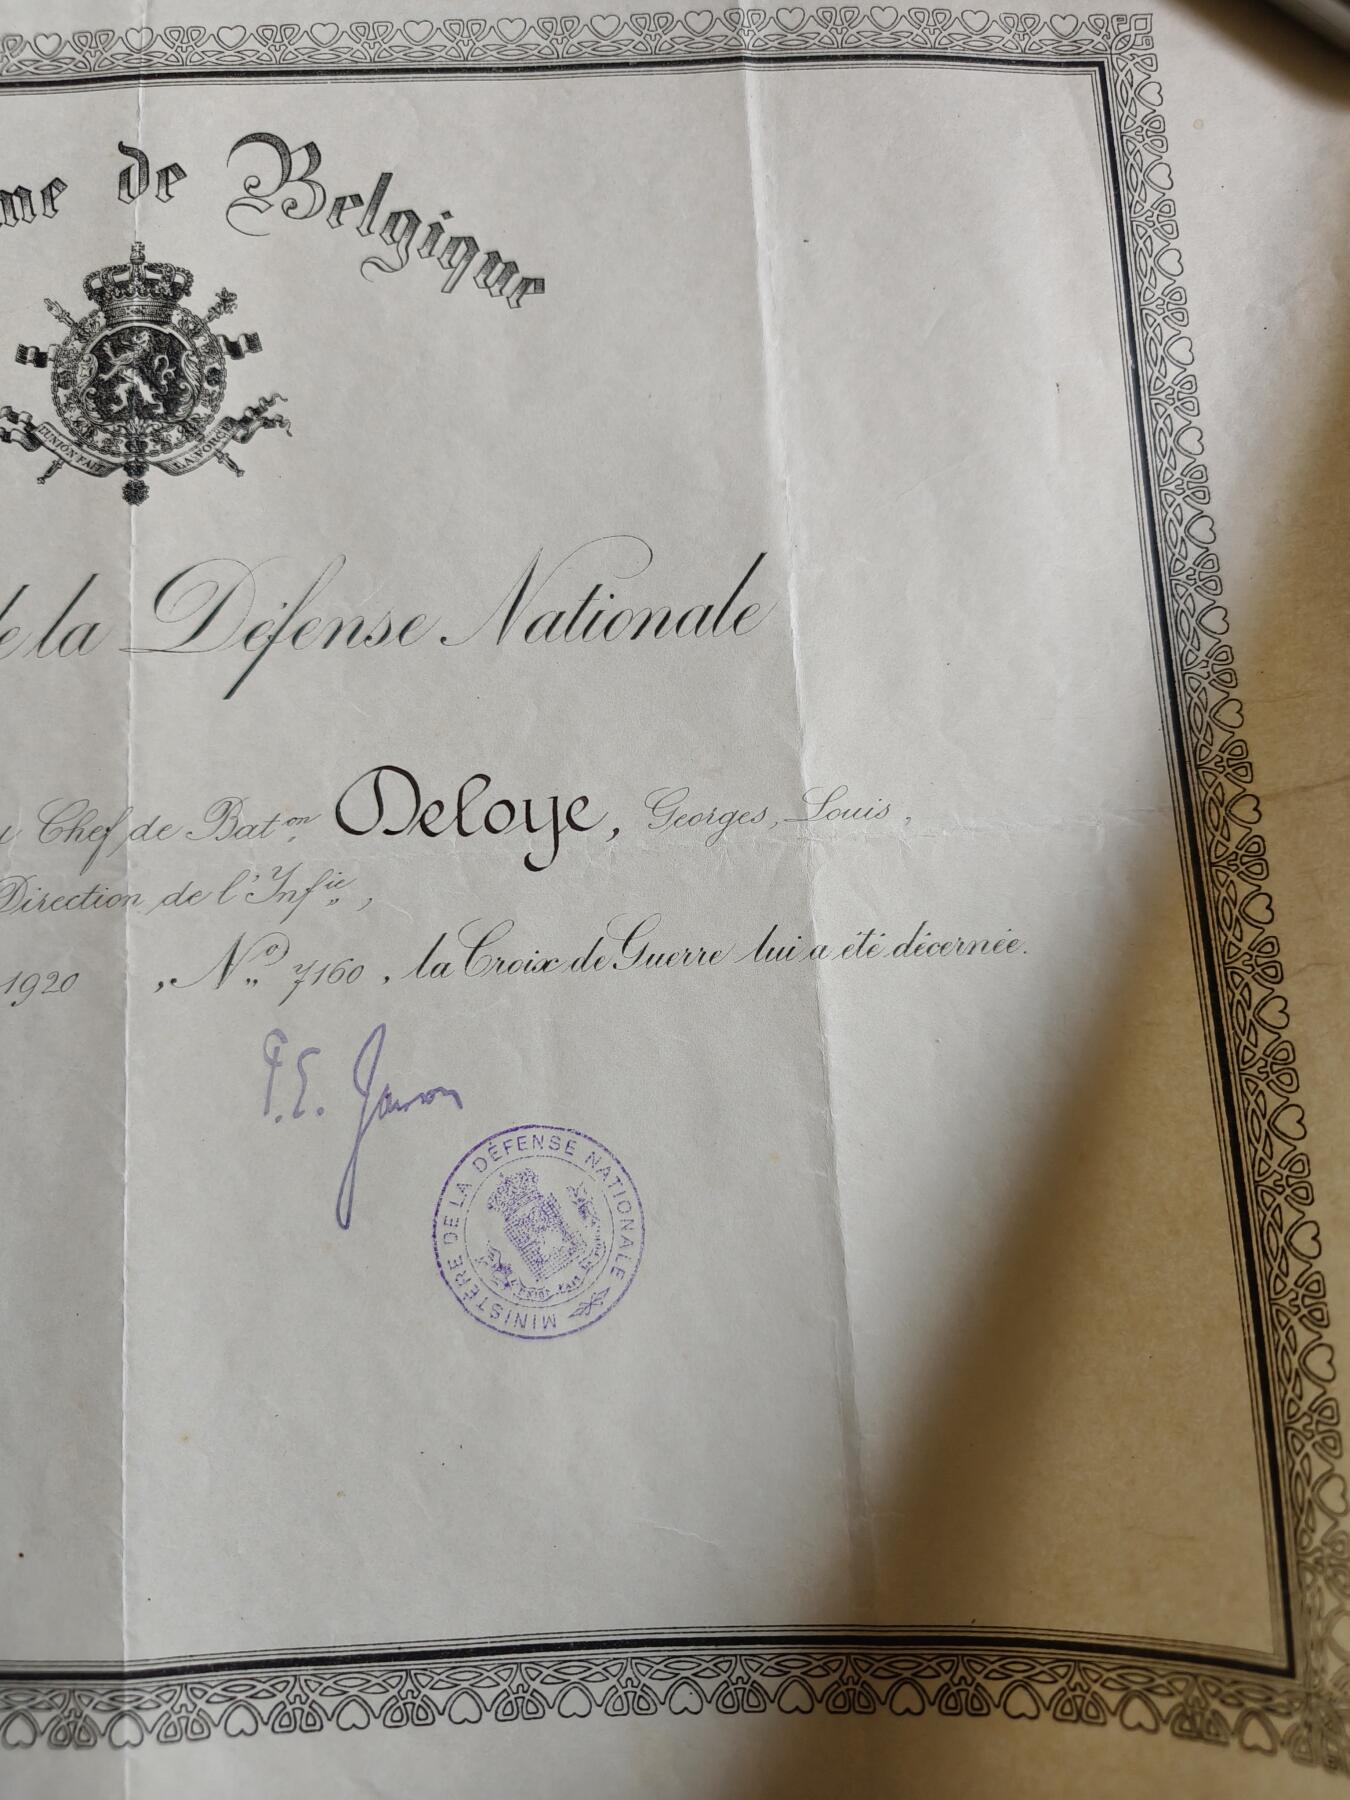 me de Belgique
L'UNION FAIT LA FORCE
de la Défense Nationale
Chef de Bat.on Deloye, Georges, Louis,
Direction de l'Inf.ie,
1920, No 7160, la Croix de Guerre lui a été décernée.
P.E. Janson
MINISTÈRE DE LA DÉFENSE NATIONALE